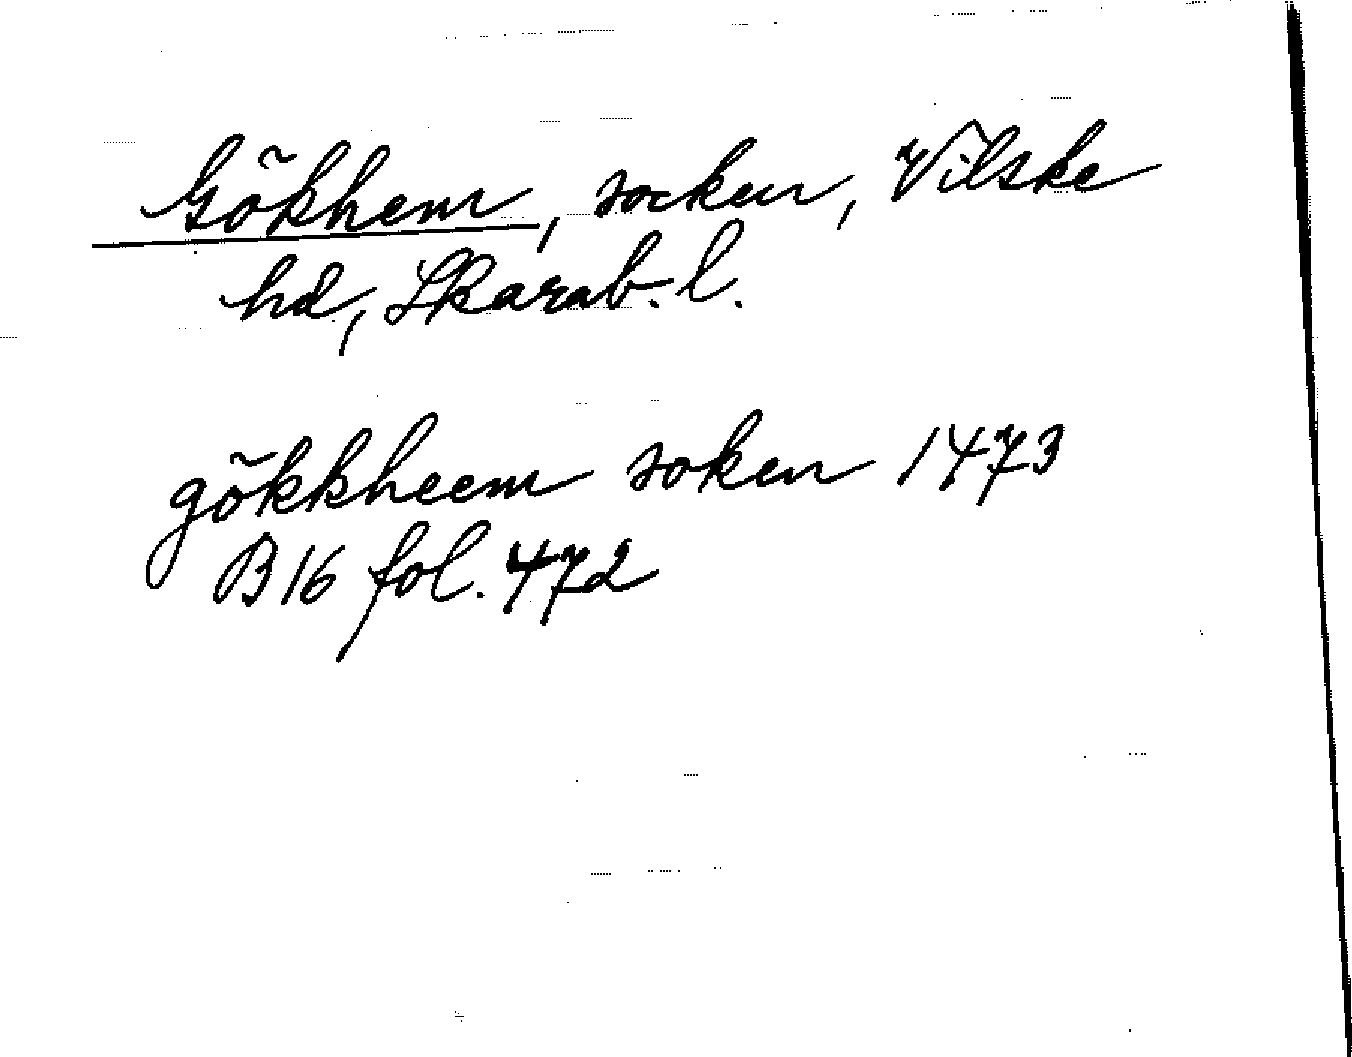 Gökhem, socken, Vilske
hd, Skarab. l.
gökkheem soken 1473
B16 fol. 472